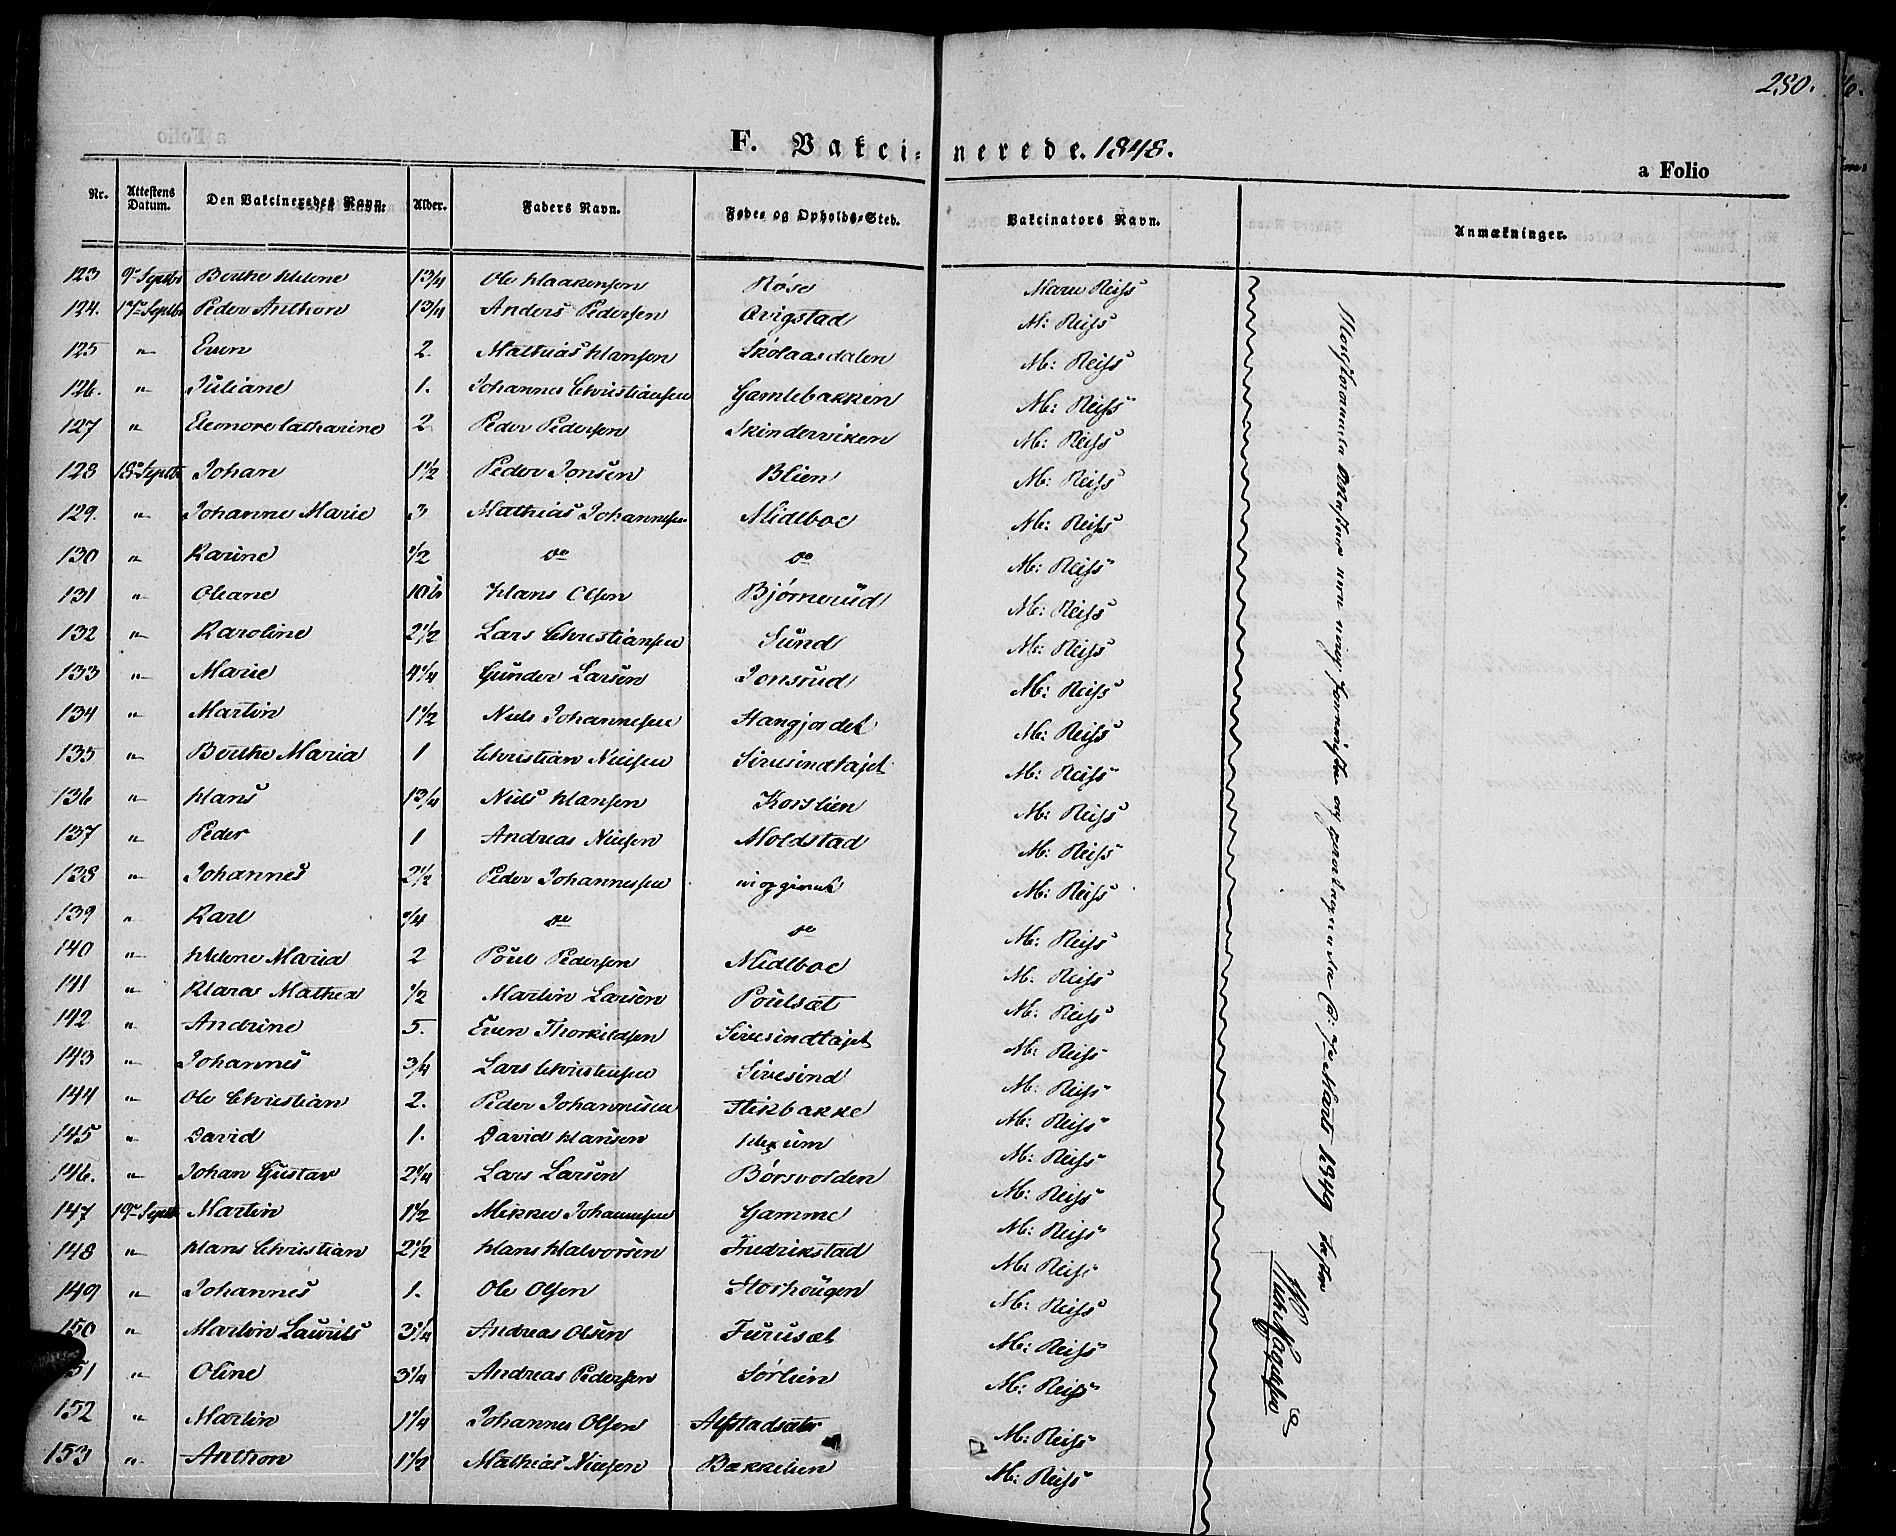 280.
F. Vakci- nerede. 1848.
a Folio
Nr. Attestens Datum. Den Vakcineredes Navn. Alder. Faders Navn. Fødes og Opholds-Sted. Vakcinators Navn. Anmærkninger.
123 9de Septbr Berthe Helene 1 3/4 Ole Haakensen Røise Maren Reiss
124. 17de Septbr Peder Anthon 1 3/4 Anders Pedersen Qvigstad M: Reiss
125 " Even 2. Mathias Hansen Skolaasdalen M: Reiss
126. " Juliane 1. Johannes Christiansen Gamlebakken M: Reiss
127 " Eleonore Catharine 2 Peder Pedersen Skinderviken M: Reiss
128 18de Septbr Johan 1 1/2 Peder Jonsen Blien M: Reiss
129. " Johanne Marie 3 Mathias Johannesen Midlboe M: Reiss
130 " Karine 1/2 do do M: Reiss
131 " Oleane Hans Olsen Bjørnerud M: Reiss
132 " Karoline 2 1/2 Lars Christiansen Sund M: Reiss
133 " Marie 4 1/4 Gunder Larsen Jonsrud M: Reiss
134 " Martin 1 1/2 Niels Johannesen Stangjordet M: Reiss
135 " Berthe Maria 1 Christian Nielsen Sivesindtajet M: Reiss
136 " Hans 1 3/4 Niels Hansen Korslien M: Reiss
137 " Peder 1 Andreas Nielsen Moldstad M: Reiss
138 " Johannes 2 1/2 Peder Johannessen M: Reiss
139 " Karl 3/4 do do M: Reiss
140 " Helene Maria 2 Poul Pedersen Midlboe M: Reiss
141 " Klara Mathea 1/2 Martin Larsen Poulsæt M: Reiss
142 " Andrine 5. Even Thorkildsen Sivesindtajet M: Reiss
143 " Johannes 3/4 Lars Christensen Sivesind M: Reiss
144 " Ole Christian 2. Peder Johannesen Stikbakke M: Reiss
145 " David 1. David Hansen Hexum M: Reiss
146. " Johan Gustav 2 1/4 Lars Larsen Børsvolden M: Reiss
147 19de Septbr Martin 1 1/2 Mikkel Johannesen Gamme M: Reiss
148 " Hans Christian 2 1/2 Hans Halvorsen Fredrikstad M: Reiss
149 " Johannes 1. Ole Olsen Storhougen M: Reiss
150 " Martin Laurits 3 1/4 Andreas Olsen Furusæt M: Reiss
151 " Oline 3 1/4 Andreas Pedersen Sørlien M: Reiss
152 " Martin 1 1/4 Johannes Olsen Alfstadsæter M: Reiss
153 " Anthon 1 1/2 Mathias Nielsen Bækkelien M: Reiss
Marts 1849